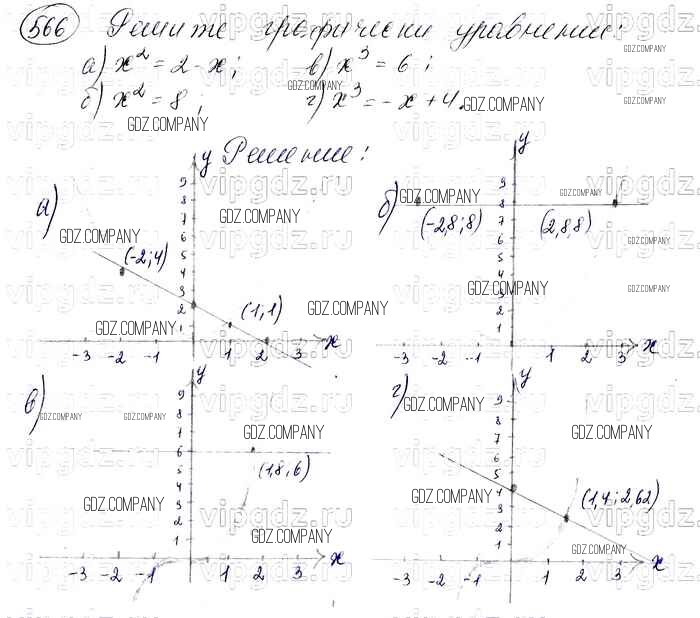 566 Решите графически уравнения:
а) x² = 2 - x;
б) x² = 8;
в) x³ = 6;
г) x³ = -x + 4.
GDZ.COMPANY
Решение:
а)
y
9
8
7
6
5
4
3
2
1
(-2; 4)
(1; 1)
-3 -2 -1 1 2 3 x
б)
y
9
8
7
6
5
4
3
2
1
(-2,8; 8)
(2,8; 8)
-3 -2 -1 1 2 3 x
в)
y
9
8
7
6
5
4
3
2
1
(1,8; 6)
-3 -2 -1 1 2 3 x
г)
y
9
8
7
6
5
4
3
2
1
(1,4; 2,62)
-3 -2 -1 1 2 3 x
vipgdz.ru